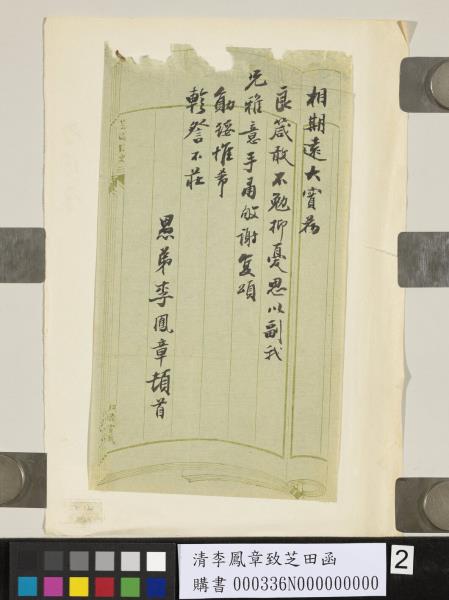 相期遠大實為
良箴敢不勉抑憂思以副我
兄雅意手肅敬謝復頌
勛綏惟希
詧不莊
愚弟李鳳章頓首
清李鳳章致芝田函
購書 000336N000000000
2